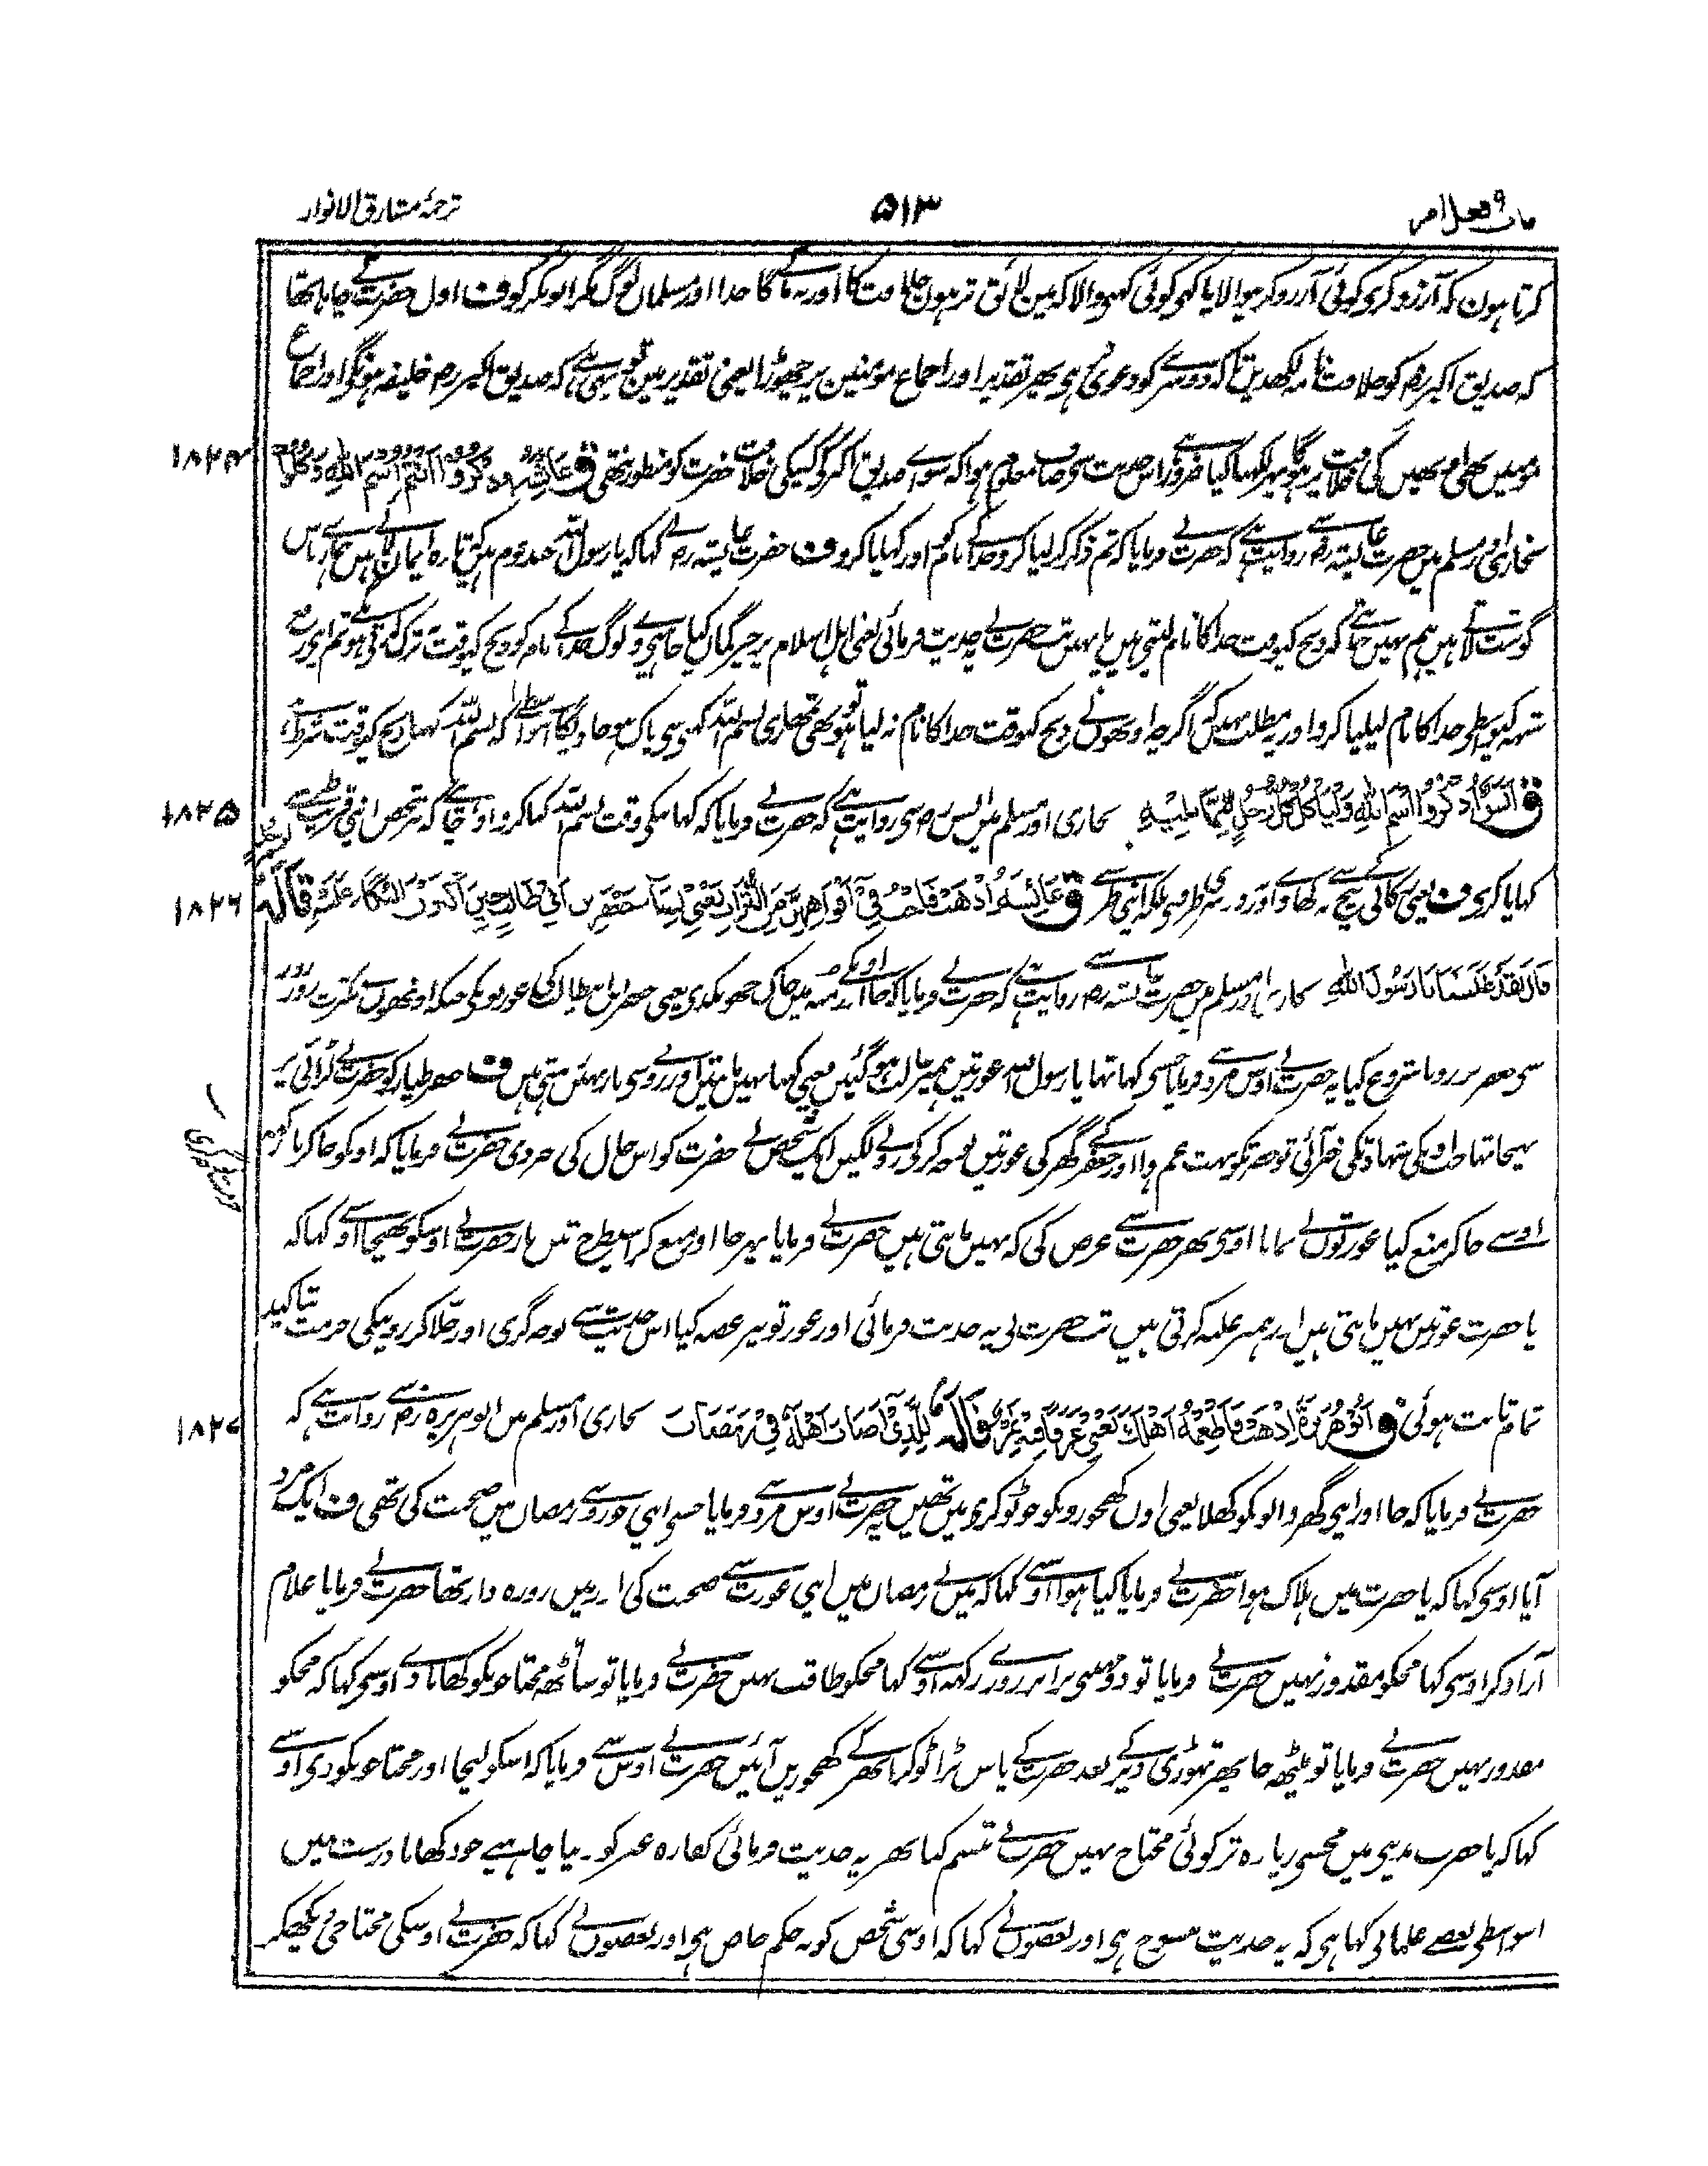 باب ۹ فعل امر
۵۱۳
ترجمۂ مشارق الانوار
کرتا ہون کہ آرزو کری کوئی آرزو کرنیوالا یا کہی کوئی کہنیوالا کہ مین لائق تر ہون خلافت کا اور نہ مانے گا خدا اور مسلمان لوگ مگر ابو بکر کو ف اول حضرت نے چاہا تھا
کہ صدیق اکبر رض کو خلافت نامہ لکھدین تاکہ دوسرے کو دعوی نہ ہو پھر تقدیر اور اجماع مؤمنین پر چھوڑا یعنی تقدیر مین یہی ہے کہ صدیق اکبر رض خلیفہ ہونگے اور اجماع
مومنین بھی انھین کی خلافت پر ہوگا پھر لکھنا کیا ضرور اس حدیث سی صاف معلوم ہوا کہ سوای صدیق اکبر کے کسیکی خلافت حضرت کو منظور نتھی ق عائشة اذکروا انتم اسم الله وکلوا
۱۸۲۴
بخاری اور مسلم مین حضرت عایشہ رض سے روایت ہے کہ حضرت نے فرمایا کہ تم ذکر کر لیا کرو خدا کے نام کو اور کہایا کرو ف حضرت عایشہ رض نے کہا کہ یا رسول الله چند قوم ہین کہ تازہ ایمان لائے ہین ہمارے پاس
گوشت لاتے ہین ہم نہین جانتے کہ ذبح کیوقت خدا کا نام لیتی ہین یا نہین تب حضرت نے یہ حدیث فرمائی یعنی اہل اسلام پر خیر گمان کیا چاہیے وہ لوگ خدا کے نام کو ذبح کیوقت ترک نکرتے ہونگے تم اپنی رفع
شبہہ کیواسطی خدا کا نام لیلیا کرو اور یہ مطلب نہین کہ اگرچہ اونھون نے ذبح کیوقت خدا کا نام نہ لیا ہو تو بھی تمھاری بسم الله کہنی سی پاک ہو جاویگا اسواسطے کہ بسم الله کہنا ذبح کیوقت شرط ہے
ق انس اذکروا اسم الله ولیاکل کل رجل مما یلیه بخاری اور مسلم مین انس رض سی روایت ہے کہ حضرت نے فرمایا کہ کہانیکی وقت بسم الله کہا کرو اور چاہیے کہ ہر شخص اپنی قریب سے
۱۸۲۵
کہایا کری ف یعنی رکابی کے بیچ سے نہ کھاوے اور دوسری طرف سی بلکہ اپنی طرف سے ق عائشة اذهب فاحث فی افواههن من التراب یعنی نساء جعفر بن ابی طالب حین اکثرن البکاء علیه قاله لرجل
۱۸۲۶
قال لقد غلبننا یا رسول الله بخاری اور مسلم مین حضرت عایشہ رض سے روایت ہے کہ حضرت نے فرمایا کہ جا اونکے منہ مین خاک جھونکدی یعنی جعفر بن ابی طالب کی عورتونکو جبکہ اونھون نے کثرت زور
سی جعفر پر رونا شروع کیا یہ حضرت نے اوس مرد سے فرمایا جسی کہا تہا یا رسول الله عورتین ہمپر غالب ہوگئین میری کہنا نہین مانتین اور رونے سی باز نہین رہتی ہین ف جعفر طیار کو حضرت نے لڑائی پر
بہیجا تہا جب اونکی شہادتکی خبر آئی تو حضرتکو بہت غم ہوا اور جعفر کے گھر کی عورتین نوحہ کرکے رونے لگین ایک شخص نے حضرت کو اس حال کی خبر دی حضرت نے فرمایا کہ اونکو جاکر منع کر
اوسے جاکر منع کیا عورتون نے نمانا اوسی پھر حضرت سے عرض کی کہ نہین مانتی ہین حضرت نے فرمایا پہر جا اور منع کر اسیطرح تین بار حضرت نے اوسکو بھیجا اوسے کہا کہ
یا حضرت عورتین نہین مانتی ہین اور ہمپر غلبہ کرتی ہین تب حضرت نی یہ حدیث فرمائی اور عورتونپر غصہ کیا اس حدیث سے نوحہ گری اور چلا کر رونیکی حرمت بتاکید
تمام ثابت ہوئی ق ابو هریرة اذهب فاطعمه اهلک یعنی عرقا فیه تمر قاله للذی اصاب اهله فی رمضان بخاری اور مسلم مین ابو ہریرہ رض سے روایت ہے کہ
۱۸۲۷
حضرت نے فرمایا کہ جا اور اپنی گھر والونکو کھلا یعنی اون کھجورونکو جو ٹوکری مین تھین یہ حضرت نے اوس مرد سے فرمایا جسی اپنی جورو سے رمضان مین صحبت کی تھی ف ایک مرد
آیا اوسی کہا کہ یا حضرت مین ہلاک ہوا حضرت نے فرمایا کیا ہوا اوسے کہا کہ مین نے رمضان مین اپنی عورت سے صحبت کی اور مین روزہ دار تھا حضرت نے فرمایا غلام
آزاد کر اوسی کہا مجکو مقدور نہین حضرت نے فرمایا تو دو مہینی برابر روزے رکہہ اوسے کہا مجکو طاقت نہین حضرت نے فرمایا تو ساٹھہ محتاجونکو کھانا دے اوسی کہا کہ مجکو
مقدور نہین حضرت نے فرمایا تو بیٹھہ جا پھر تہوڑی دیر کے بعد حضرت کے پاس بڑا ٹوکرا بھر کے کھجورین آئین حضرت نے اوس سے فرمایا کہ اسکو لیجا اور محتاجونکو دی اوسے
کہا کہ یا حضرت مدینی مین مجھسی زیادہ تر کوئی محتاج نہین حضرت نے تبسم کیا پھر یہ حدیث فرمائی کفارہ غیر کو دینا چاہیے خود کھانا درست نہین
اسواسطی بعضے علمانی کہا ہی کہ یہ حدیث منسوخ ہی اور بعضون نے کہا کہ اوسی شخص کو یہ حکم خاص ہی اور بعضون نے کہا کہ حضرت نے اوسکی محتاجی دیکھکر